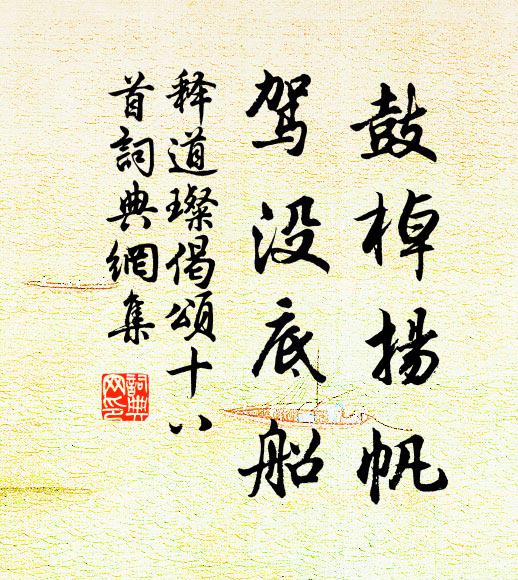 鼓棹揚帆
驾没底船
释道璨偈頌十八
首詞典網集
詞典
网印